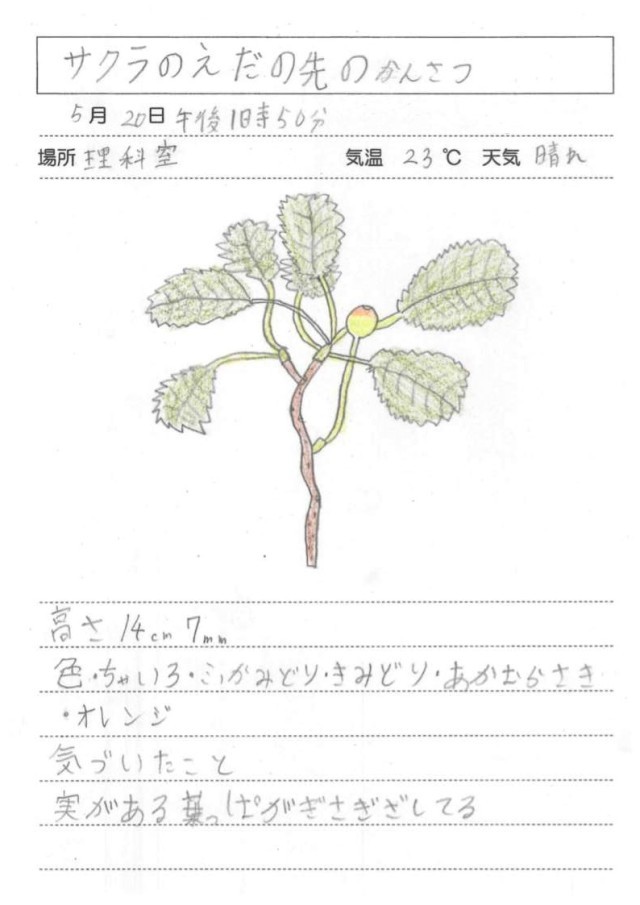 サクラのえだの先のかんさつ
5月 20日 午後1時50分
場所 理科室 気温 23℃ 天気 晴れ
高さ 14cm 7mm
色・ちゃいろ・ふかみどり・きみどり・あかむらさき
・オレンジ
気づいたこと
実がある葉っぱがぎさぎざしてる